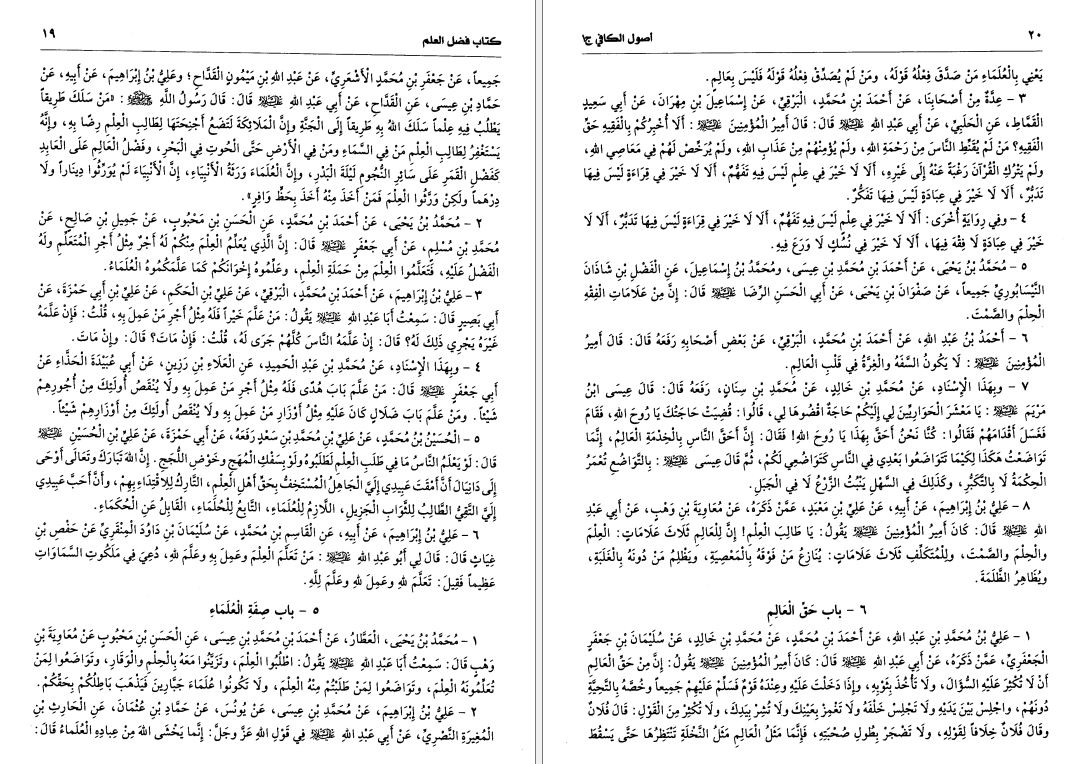 كتاب فضل العلم ١٩
جَمِيعاً، عَنْ جَعْفَرِ بْنِ مُحَمَّدٍ الْأَشْعَرِيِّ، عَنْ عَبْدِ اللهِ بْنِ مَيْمُونٍ الْقَدَّاحِ؛ وعَلِيُّ بْنُ إِبْرَاهِيمَ، عَنْ أَبِيهِ، عَنْ
حَمَّادِ بْنِ عِيسَى، عَنِ الْقَدَّاحِ، عَنْ أَبِي عَبْدِ اللهِ عَلَيْهِ السَّلَام قَالَ: قَالَ رَسُولُ اللَّهِ ﷺ: «مَنْ سَلَكَ طَرِيقاً
يَطْلُبُ فِيهِ عِلْماً سَلَكَ اللهُ بِهِ طَرِيقاً إِلَى الْجَنَّةِ وإِنَّ الْمَلَائِكَةَ لَتَضَعُ أَجْنِحَتَهَا لِطَالِبِ الْعِلْمِ رِضًا بِهِ، وإِنَّهُ
يَسْتَغْفِرُ لِطَالِبِ الْعِلْمِ مَنْ فِي السَّمَاءِ ومَنْ فِي الْأَرْضِ حَتَّى الْحُوتِ فِي الْبَحْرِ، وفَضْلُ الْعَالِمِ عَلَى الْعَابِدِ
كَفَضْلِ الْقَمَرِ عَلَى سَائِرِ النُّجُومِ لَيْلَةَ الْبَدْرِ، وإِنَّ الْعُلَمَاءَ وَرَثَةُ الْأَنْبِيَاءِ، إِنَّ الْأَنْبِيَاءَ لَمْ يُوَرِّثُوا دِينَاراً ولَا
دِرْهَماً ولَكِنْ وَرَّثُوا الْعِلْمَ فَمَنْ أَخَذَ مِنْهُ أَخَذَ بِحَظٍّ وَافِرٍ».
٢ - مُحَمَّدُ بْنُ يَحْيَى، عَنْ أَحْمَدَ بْنِ مُحَمَّدٍ، عَنِ الْحَسَنِ بْنِ مَحْبُوبٍ، عَنْ جَمِيلِ بْنِ صَالِحٍ، عَنْ
مُحَمَّدِ بْنِ مُسْلِمٍ، عَنْ أَبِي جَعْفَرٍ عَلَيْهِ السَّلَام قَالَ: إِنَّ الَّذِي يُعَلِّمُ الْعِلْمَ مِنْكُمْ لَهُ أَجْرٌ مِثْلُ أَجْرِ الْمُتَعَلِّمِ ولَهُ
الْفَضْلُ عَلَيْهِ، فَتَعَلَّمُوا الْعِلْمَ مِنْ حَمَلَةِ الْعِلْمِ، وعَلِّمُوهُ إِخْوَانَكُمْ كَمَا عَلَّمَكُمُوهُ الْعُلَمَاءُ.
٣ - عَلِيُّ بْنُ إِبْرَاهِيمَ، عَنْ أَحْمَدَ بْنِ مُحَمَّدٍ، الْبَرْقِيِّ، عَنْ عَلِيِّ بْنِ الْحَكَمِ، عَنْ عَلِيِّ بْنِ أَبِي حَمْزَةَ، عَنْ
أَبِي بَصِيرٍ قَالَ: سَمِعْتُ أَبَا عَبْدِ اللهِ عَلَيْهِ السَّلَام يَقُولُ: مَنْ عَلَّمَ خَيْراً فَلَهُ مِثْلُ أَجْرِ مَنْ عَمِلَ بِهِ، قُلْتُ: فَإِنْ عَلَّمَهُ
غَيْرَهُ يَجْرِي ذَلِكَ لَهُ؟ قَالَ: إِنْ عَلَّمَهُ النَّاسَ كُلَّهُمْ جَرَى لَهُ، قُلْتُ: فَإِنْ مَاتَ؟ قَالَ: وإِنْ مَاتَ.
٤ - وبِهَذَا الْإِسْنَادِ، عَنْ مُحَمَّدِ بْنِ عَبْدِ الْحَمِيدِ، عَنِ الْعَلَاءِ بْنِ رَزِينٍ، عَنْ أَبِي عُبَيْدَةَ الْحَذَّاءِ عَنْ
أَبِي جَعْفَرٍ عَلَيْهِ السَّلَام قَالَ: مَنْ عَلَّمَ بَابَ هُدًى فَلَهُ مِثْلُ أَجْرِ مَنْ عَمِلَ بِهِ ولَا يُنْقَصُ أُولَئِكَ مِنْ أُجُورِهِمْ
شَيْئاً. ومَنْ عَلَّمَ بَابَ ضَلَالٍ كَانَ عَلَيْهِ مِثْلُ أَوْزَارِ مَنْ عَمِلَ بِهِ ولَا يُنْقَصُ أُولَئِكَ مِنْ أَوْزَارِهِمْ شَيْئاً.
٥ - الْحُسَيْنُ بْنُ مُحَمَّدٍ، عَنْ عَلِيِّ بْنِ مُحَمَّدِ بْنِ سَعْدٍ رَفَعَهُ، عَنْ أَبِي حَمْزَةَ، عَنْ عَلِيِّ بْنِ الْحُسَيْنِ عَلَيْهِ السَّلَام
قَالَ: لَوْ يَعْلَمُ النَّاسُ مَا فِي طَلَبِ الْعِلْمِ لَطَلَبُوهُ ولَوْ بِسَفْكِ الْمُهَجِ وخَوْضِ اللُّجَجِ. إِنَّ اللهَ تَبَارَكَ وتَعَالَى أَوْحَى
إِلَى دَانِيَالَ أَنَّ أَمْقَتَ عَبِيدِي إِلَيَّ الْجَاهِلُ الْمُسْتَخِفُّ بِحَقِّ أَهْلِ الْعِلْمِ، التَّارِكُ لِلِاقْتِدَاءِ بِهِمْ، وأَنَّ أَحَبَّ عَبِيدِي
إِلَيَّ التَّقِيُّ الطَّالِبُ لِلثَّوَابِ الْجَزِيلِ، اللَّازِمُ لِلْعُلَمَاءِ، التَّابِعُ لِلْحُلَمَاءِ، الْقَابِلُ عَنِ الْحُكَمَاءِ.
٦ - عَلِيُّ بْنُ إِبْرَاهِيمَ، عَنْ أَبِيهِ، عَنِ الْقَاسِمِ بْنِ مُحَمَّدٍ، عَنْ سُلَيْمَانَ بْنِ دَاوُدَ الْمِنْقَرِيِّ عَنْ حَفْصِ بْنِ
غِيَاثٍ قَالَ: قَالَ لِي أَبُو عَبْدِ اللهِ عَلَيْهِ السَّلَام: مَنْ تَعَلَّمَ الْعِلْمَ وعَمِلَ بِهِ وعَلَّمَ لِلهِ، دُعِيَ فِي مَلَكُوتِ السَّمَاوَاتِ
عَظِيماً فَقِيلَ: تَعَلَّمَ لِلهِ وعَمِلَ لِلهِ وعَلَّمَ لِلَّهِ.
٥ - باب صِفَةِ الْعُلَمَاءِ
١ - مُحَمَّدُ بْنُ يَحْيَى، الْعَطَّارُ، عَنْ أَحْمَدَ بْنِ مُحَمَّدِ بْنِ عِيسَى، عَنِ الْحَسَنِ بْنِ مَحْبُوبٍ عَنْ مُعَاوِيَةَ بْنِ
وَهْبٍ قَالَ: سَمِعْتُ أَبَا عَبْدِ اللهِ عَلَيْهِ السَّلَام يَقُولُ: اطْلُبُوا الْعِلْمَ، وتَزَيَّنُوا مَعَهُ بِالْحِلْمِ والْوَقَارِ، وتَوَاضَعُوا لِمَنْ
تُعَلِّمُونَهُ الْعِلْمَ، وتَوَاضَعُوا لِمَنْ طَلَبْتُمْ مِنْهُ الْعِلْمَ، ولَا تَكُونُوا عُلَمَاءَ جَبَّارِينَ فَيَذْهَبَ بَاطِلُكُمْ بِحَقِّكُمْ.
٢ - عَلِيُّ بْنُ إِبْرَاهِيمَ، عَنْ مُحَمَّدِ بْنِ عِيسَى، عَنْ يُونُسَ، عَنْ حَمَّادِ بْنِ عُثْمَانَ، عَنِ الْحَارِثِ بْنِ
الْمُغِيرَةِ النَّصْرِيِّ، عَنْ أَبِي عَبْدِ اللهِ عَلَيْهِ السَّلَام فِي قَوْلِ اللهِ عَزَّ وجَلَّ: إِنَّما يَخْشَى اللهَ مِنْ عِبادِهِ الْعُلَماءُ قَالَ:
٢٠ أصول الكافي ج١
يَعْنِي بِالْعُلَمَاءِ مَنْ صَدَّقَ فِعْلُهُ قَوْلَهُ، ومَنْ لَمْ يُصَدِّقْ فِعْلُهُ قَوْلَهُ فَلَيْسَ بِعَالِمٍ.
٣ - عِدَّةٌ مِنْ أَصْحَابِنَا، عَنْ أَحْمَدَ بْنِ مُحَمَّدٍ، الْبَرْقِيِّ، عَنْ إِسْمَاعِيلَ بْنِ مِهْرَانَ، عَنْ أَبِي سَعِيدٍ
الْقَمَّاطِ، عَنِ الْحَلَبِيِّ، عَنْ أَبِي عَبْدِ اللهِ عَلَيْهِ السَّلَام قَالَ: قَالَ أَمِيرُ الْمُؤْمِنِينَ عَلَيْهِ السَّلَام: أَلَا أُخْبِرُكُمْ بِالْفَقِيهِ حَقِّ
الْفَقِيهِ؟ مَنْ لَمْ يُقَنِّطِ النَّاسَ مِنْ رَحْمَةِ اللهِ، ولَمْ يُؤْمِنْهُمْ مِنْ عَذَابِ اللهِ، ولَمْ يُرَخِّصْ لَهُمْ فِي مَعَاصِي اللهِ،
ولَمْ يَتْرُكِ الْقُرْآنَ رَغْبَةً عَنْهُ إِلَى غَيْرِهِ، أَلَا لَا خَيْرَ فِي عِلْمٍ لَيْسَ فِيهِ تَفَهُّمٌ، أَلَا لَا خَيْرَ فِي قِرَاءَةٍ لَيْسَ فِيهَا
تَدَبُّرٌ، أَلَا لَا خَيْرَ فِي عِبَادَةٍ لَيْسَ فِيهَا تَفَكُّرٌ.
٤ - وفِي رِوَايَةٍ أُخْرَى: أَلَا لَا خَيْرَ فِي عِلْمٍ لَيْسَ فِيهِ تَفَهُّمٌ، أَلَا لَا خَيْرَ فِي قِرَاءَةٍ لَيْسَ فِيهَا تَدَبُّرٌ، أَلَا لَا
خَيْرَ فِي عِبَادَةٍ لَا فِقْهَ فِيهَا، أَلَا لَا خَيْرَ فِي نُسُكٍ لَا وَرَعَ فِيهِ.
٥ - مُحَمَّدُ بْنُ يَحْيَى، عَنْ أَحْمَدَ بْنِ مُحَمَّدِ بْنِ عِيسَى، ومُحَمَّدُ بْنُ إِسْمَاعِيلَ، عَنِ الْفَضْلِ بْنِ شَاذَانَ
النَّيْسَابُورِيِّ جَمِيعاً، عَنْ صَفْوَانَ بْنِ يَحْيَى، عَنْ أَبِي الْحَسَنِ الرِّضَا عَلَيْهِ السَّلَام قَالَ: إِنَّ مِنْ عَلَامَاتِ الْفِقْهِ
الْحِلْمَ والصَّمْتَ.
٦ - أَحْمَدُ بْنُ عَبْدِ اللهِ، عَنْ أَحْمَدَ بْنِ مُحَمَّدٍ، الْبَرْقِيِّ، عَنْ بَعْضِ أَصْحَابِهِ رَفَعَهُ قَالَ: قَالَ أَمِيرُ
الْمُؤْمِنِينَ عَلَيْهِ السَّلَام: لَا يَكُونُ السَّفَهُ والْغِرَّةُ فِي قَلْبِ الْعَالِمِ.
٧ - وبِهَذَا الْإِسْنَادِ، عَنْ مُحَمَّدِ بْنِ خَالِدٍ، عَنْ مُحَمَّدِ بْنِ سِنَانٍ، رَفَعَهُ قَالَ: قَالَ عِيسَى ابْنُ
مَرْيَمَ عَلَيْهِ السَّلَام: يَا مَعْشَرَ الْحَوَارِيِّينَ لِي إِلَيْكُمْ حَاجَةٌ اقْضُوهَا لِي، قَالُوا: قُضِيَتْ حَاجَتُكَ يَا رُوحَ اللهِ، فَقَامَ
فَغَسَلَ أَقْدَامَهُمْ فَقَالُوا: كُنَّا نَحْنُ أَحَقَّ بِهَذَا يَا رُوحَ اللهِ! فَقَالَ: إِنَّ أَحَقَّ النَّاسِ بِالْخِدْمَةِ الْعَالِمُ، إِنَّمَا
تَوَاضَعْتُ هَكَذَا لِكَيْمَا تَتَوَاضَعُوا بَعْدِي فِي النَّاسِ كَتَوَاضُعِي لَكُمْ، ثُمَّ قَالَ عِيسَى عَلَيْهِ السَّلَام: بِالتَّوَاضُعِ تُعْمَرُ
الْحِكْمَةُ لَا بِالتَّكَبُّرِ، وكَذَلِكَ فِي السَّهْلِ يَنْبُتُ الزَّرْعُ لَا فِي الْجَبَلِ.
٨ - عَلِيُّ بْنُ إِبْرَاهِيمَ، عَنْ أَبِيهِ، عَنْ عَلِيِّ بْنِ مَعْبَدٍ، عَمَّنْ ذَكَرَهُ، عَنْ مُعَاوِيَةَ بْنِ وَهْبٍ، عَنْ أَبِي عَبْدِ
اللهِ عَلَيْهِ السَّلَام قَالَ: كَانَ أَمِيرُ الْمُؤْمِنِينَ عَلَيْهِ السَّلَام يَقُولُ: يَا طَالِبَ الْعِلْمِ! إِنَّ لِلْعَالِمِ ثَلَاثَ عَلَامَاتٍ: الْعِلْمَ
والْحِلْمَ والصَّمْتَ، ولِلْمُتَكَلِّفِ ثَلَاثَ عَلَامَاتٍ: يُنَازِعُ مَنْ فَوْقَهُ بِالْمَعْصِيَةِ، ويَظْلِمُ مَنْ دُونَهُ بِالْغَلَبَةِ،
ويُظَاهِرُ الظَّلَمَةَ.
٦ - باب حَقِّ الْعَالِمِ
١ - عَلِيُّ بْنُ مُحَمَّدِ بْنِ عَبْدِ اللهِ، عَنْ أَحْمَدَ بْنِ مُحَمَّدٍ، عَنْ مُحَمَّدِ بْنِ خَالِدٍ، عَنْ سُلَيْمَانَ بْنِ جَعْفَرٍ
الْجَعْفَرِيِّ، عَمَّنْ ذَكَرَهُ، عَنْ أَبِي عَبْدِ اللهِ عَلَيْهِ السَّلَام قَالَ: كَانَ أَمِيرُ الْمُؤْمِنِينَ عَلَيْهِ السَّلَام يَقُولُ: إِنَّ مِنْ حَقِّ الْعَالِمِ
أَنْ لَا تُكْثِرَ عَلَيْهِ السُّؤَالَ، ولَا تَأْخُذَ بِثَوْبِهِ، وإِذَا دَخَلْتَ عَلَيْهِ وعِنْدَهُ قَوْمٌ فَسَلِّمْ عَلَيْهِمْ جَمِيعاً وخُصَّهُ بِالتَّحِيَّةِ
دُونَهُمْ، واجْلِسْ بَيْنَ يَدَيْهِ ولَا تَجْلِسْ خَلْفَهُ ولَا تَغْمِزْ بِعَيْنِكَ ولَا تُشِرْ بِيَدِكَ، ولَا تُكْثِرْ مِنَ الْقَوْلِ: قَالَ فُلَانٌ
وقَالَ فُلَانٌ خِلَافاً لِقَوْلِهِ، ولَا تَضْجَرْ بِطُولِ صُحْبَتِهِ، فَإِنَّمَا مَثَلُ الْعَالِمِ مَثَلُ النَّخْلَةِ تَنْتَظِرُهَا حَتَّى يَسْقُطَ